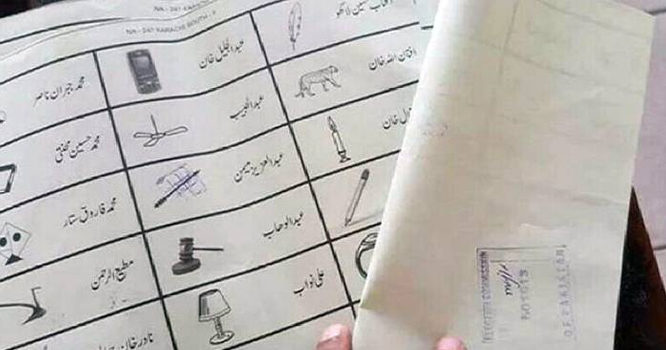 NA - 247 KARACHI SOUTH - II
عبدالجلیل خان
افنان اللہ خان
محمد جبران ناصر
عبدالحبیب
محمد حسین محنتی
عبدالعزیز میمن
محمد فاروق ستار
عبدالوهاب
مطیع الرحمن
علی نواب
نادر خان
ELECTION COMMISSION
OF PAKISTAN